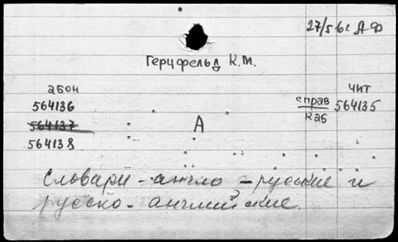 27/5 61 АФ
Герцфельд К.М.
абон чит
564136 справ 564135
каб
564137 А
564138
Словари - англо - русские и
русско - английские.